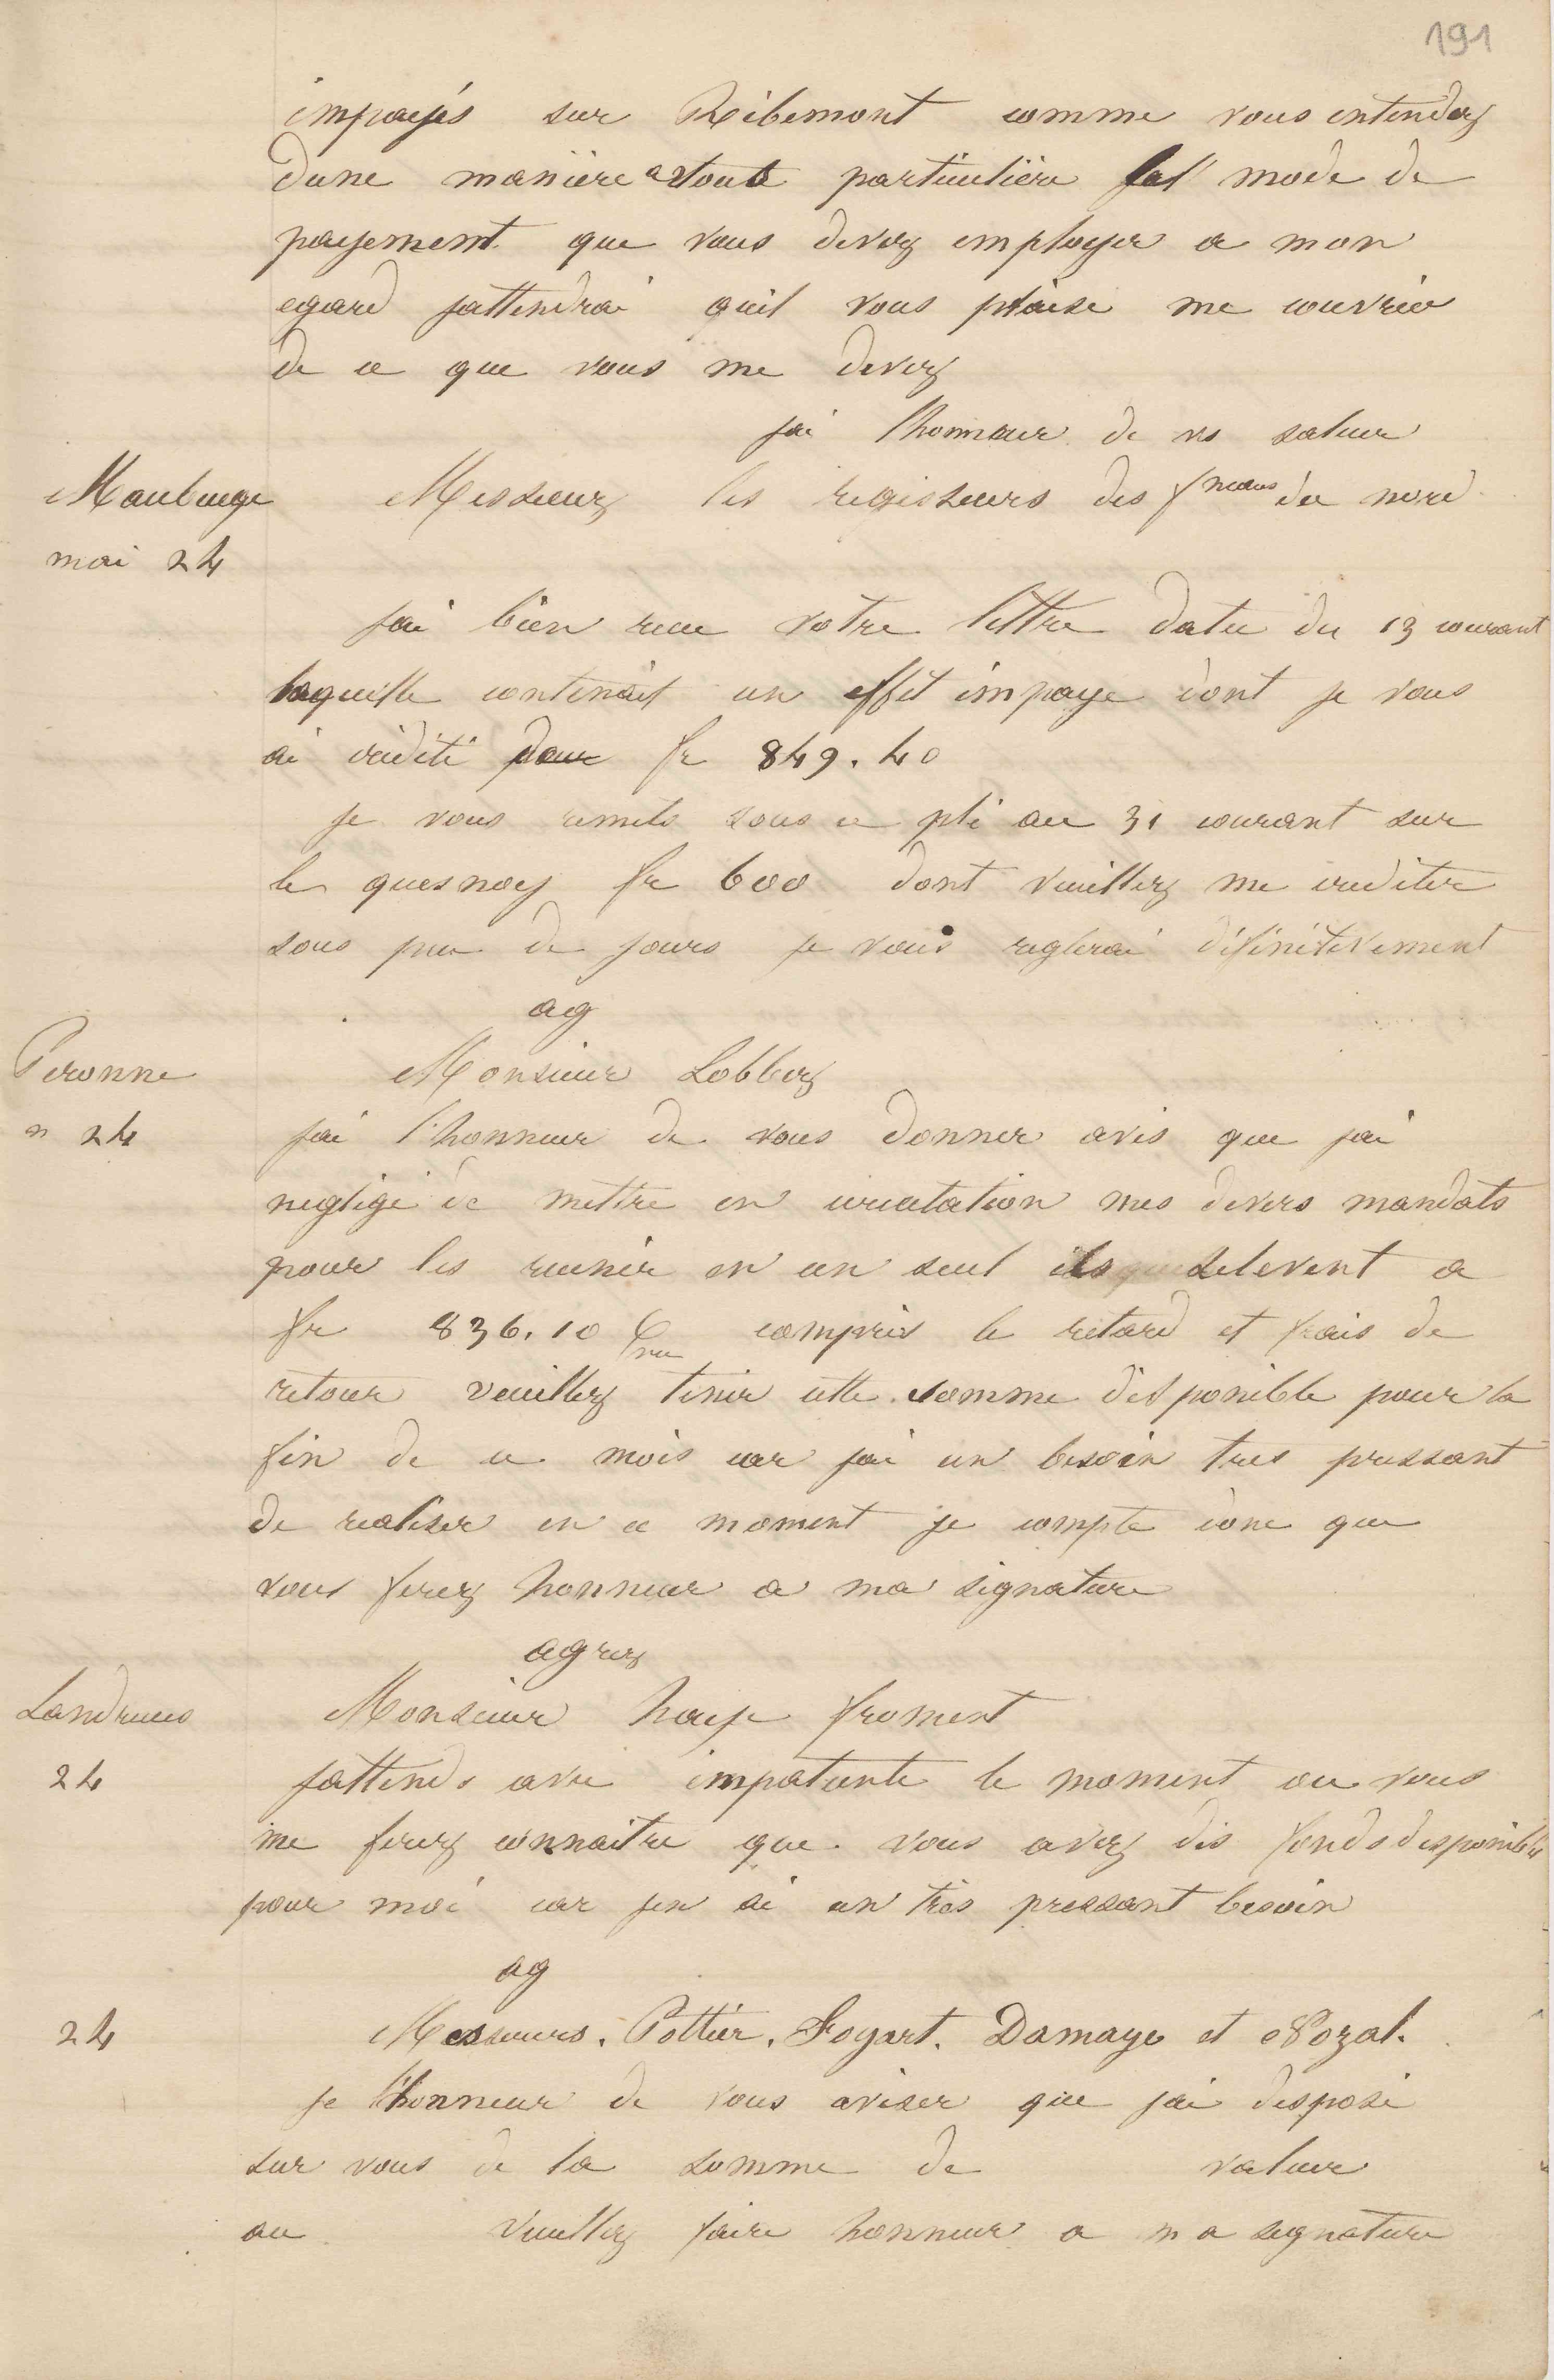 191
impayés sur Ribemont comme vous entendez
dune manière a toute particulière le mode de
payement que vous devez employer a mon
egard jattendrai quil vous plaise me couvrir
de ce que vous me devez
jai lhonneur de vs saluer
Maubeuge Messieurs les regisseurs des fneaux du nord
mai 24
jai bien recu votre lettre datée du 13 courant
laquelle contenait un effet impayé dont je vous
ai crédité pour fr 849.40
je vous remets sous ce pli au 31 courant sur
le quesnoy fr 600 dont veuillez me crediter
sous peu de jours je vous reglerai définitivement
ag
Peronne Monsieur Lobbez
" 24 jai l'honneur de vous donner avis que jai
negligé de mettre en circulation mes divers mandats
pour les reunir en un seul ils selevent a
fr 836.10 compris le retard et frais de
retour veuillez tenir cette somme disponible pour la
fin de ce mois car jai un besoin tres pressant
de realiser en ce moment je compte donc que
vous ferez honneur a ma signature
agrez
Landrecies Monsieur froment
24 jattends avec impatiente le moment ou vous
me ferez connaitre que vous avez des fonds disponibles
pour moi car jen ai un très pressant besoin
ag
24 Messieurs. Pottier. Fogart. Damaye et Nozal.
je lhonneur de vous aviser que jai disposé
sur vous de la somme de valeur
au veuillez faire honneur a ma signature